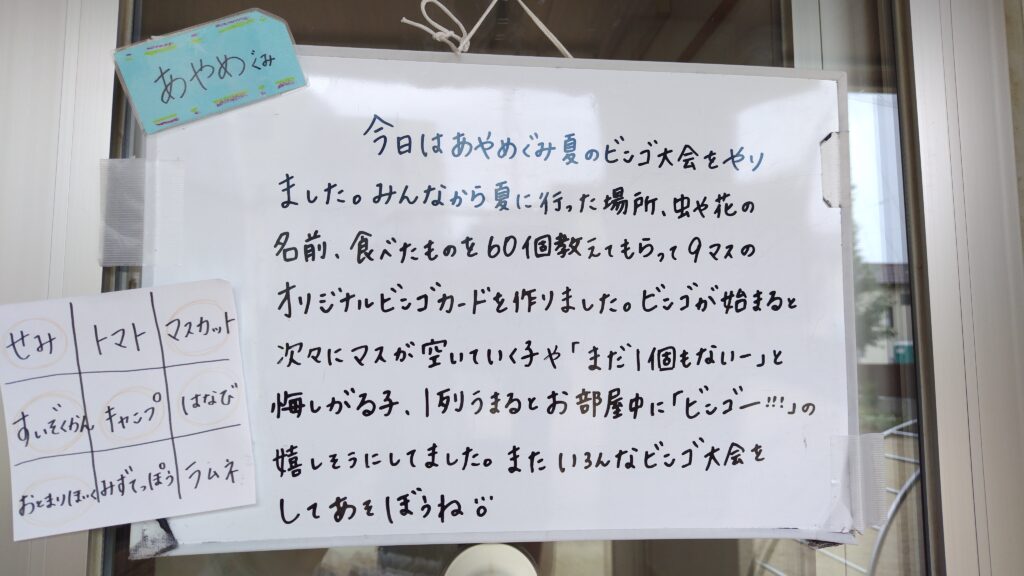 あやめぐみ
今日はあやめぐみ夏のビンゴ大会をやり
ました。みんなから夏に行った場所、虫や花の
名前、食べたものを60個教えてもらって9マスの
オリジナルビンゴカードを作りました。ビンゴが始まると
次々にマスが空いていく子や「まだ1個もないー」と
悔しがる子、1列うまるとお部屋中に「ビンゴー!!!」の
嬉しそうにしてました。またいろんなビンゴ大会を
してあそぼうね
せみ トマト マスカット
すいぞくかん キャンプ はなび
おとまりほいく みずてっぽう ラムネ